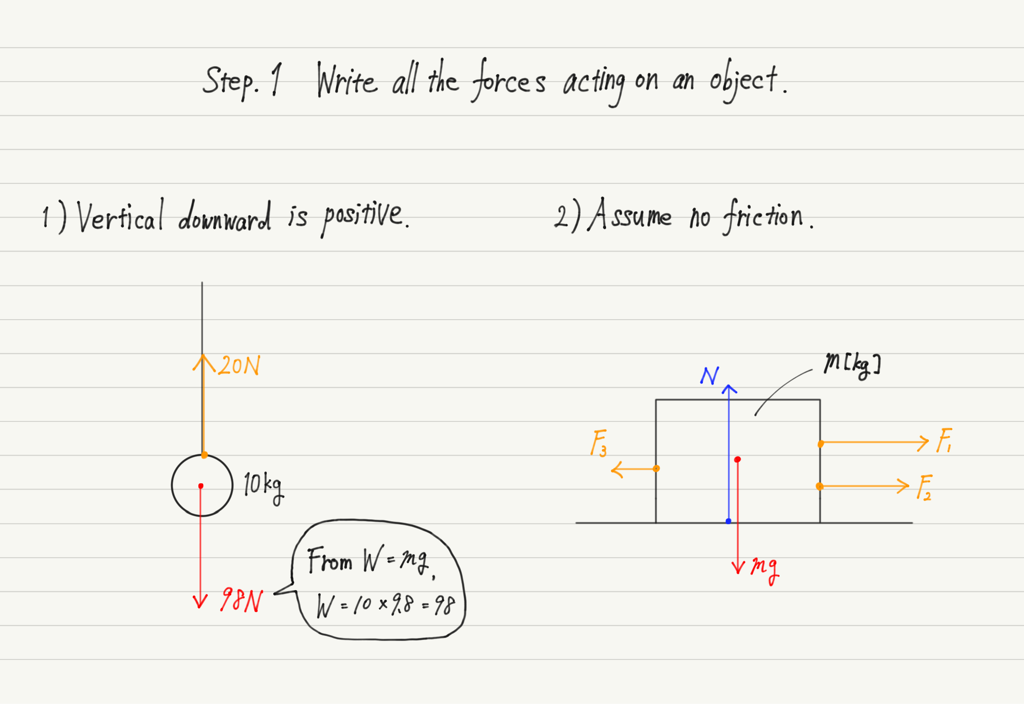 Step. 1 Write all the forces acting on an object.
1) Vertical downward is positive.
2) Assume no friction.
20N
10kg
98N
From W = mg,
W = 10 × 9.8 = 98
m[kg]
N
F₃
F₁
F₂
mg